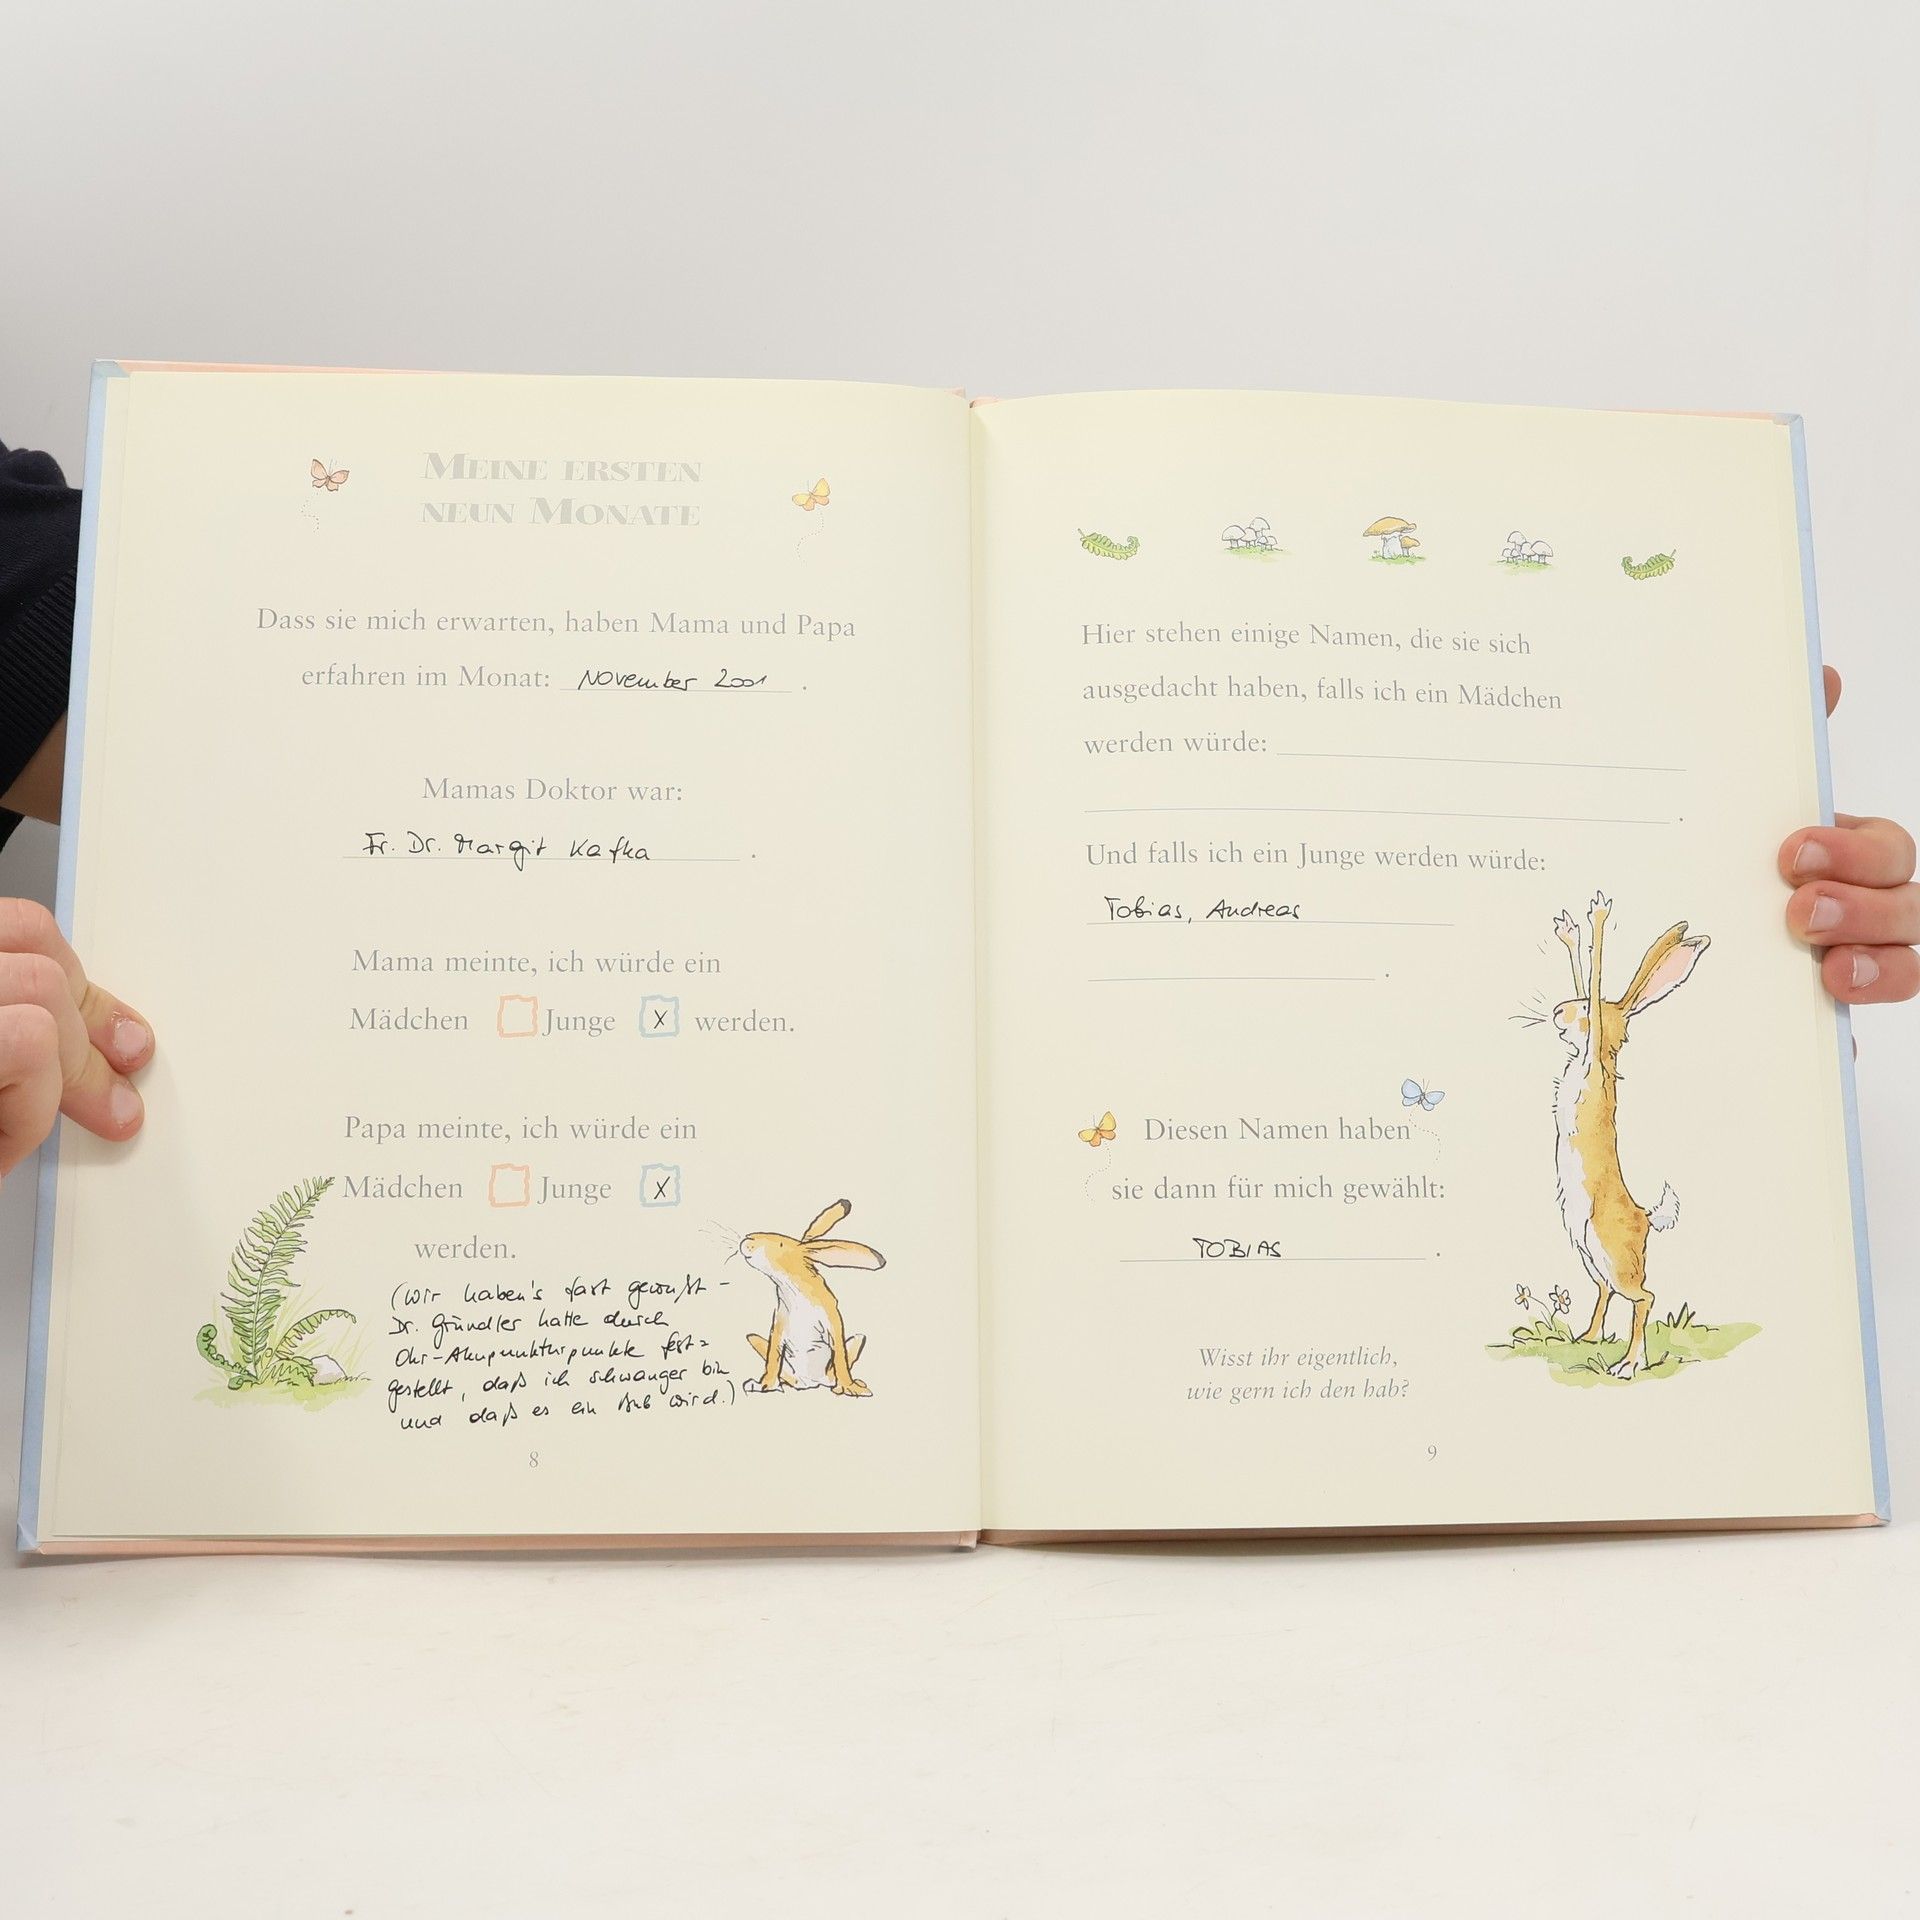 MEINE ERSTEN
NEUN MONATE
Dass sie mich erwarten, haben Mama und Papa
erfahren im Monat: November 2001 .
Mamas Doktor war:
Fr. Dr. Margit Kafka .
Mama meinte, ich würde ein
Mädchen Junge X werden.
Papa meinte, ich würde ein
Mädchen Junge X
werden.
(Wir haben's fast gewußt -
Dr. Gründler hatte durch
Ohr-Akupunkturpunkte fest=
gestellt, daß ich schwanger bin
und daß es ein Bub wird.)
8
Hier stehen einige Namen, die sie sich
ausgedacht haben, falls ich ein Mädchen
werden würde:
.
Und falls ich ein Junge werden würde:
Tobias, Andreas
.
Diesen Namen haben
sie dann für mich gewählt:
TOBIAS .
Wisst ihr eigentlich,
wie gern ich den hab?
9